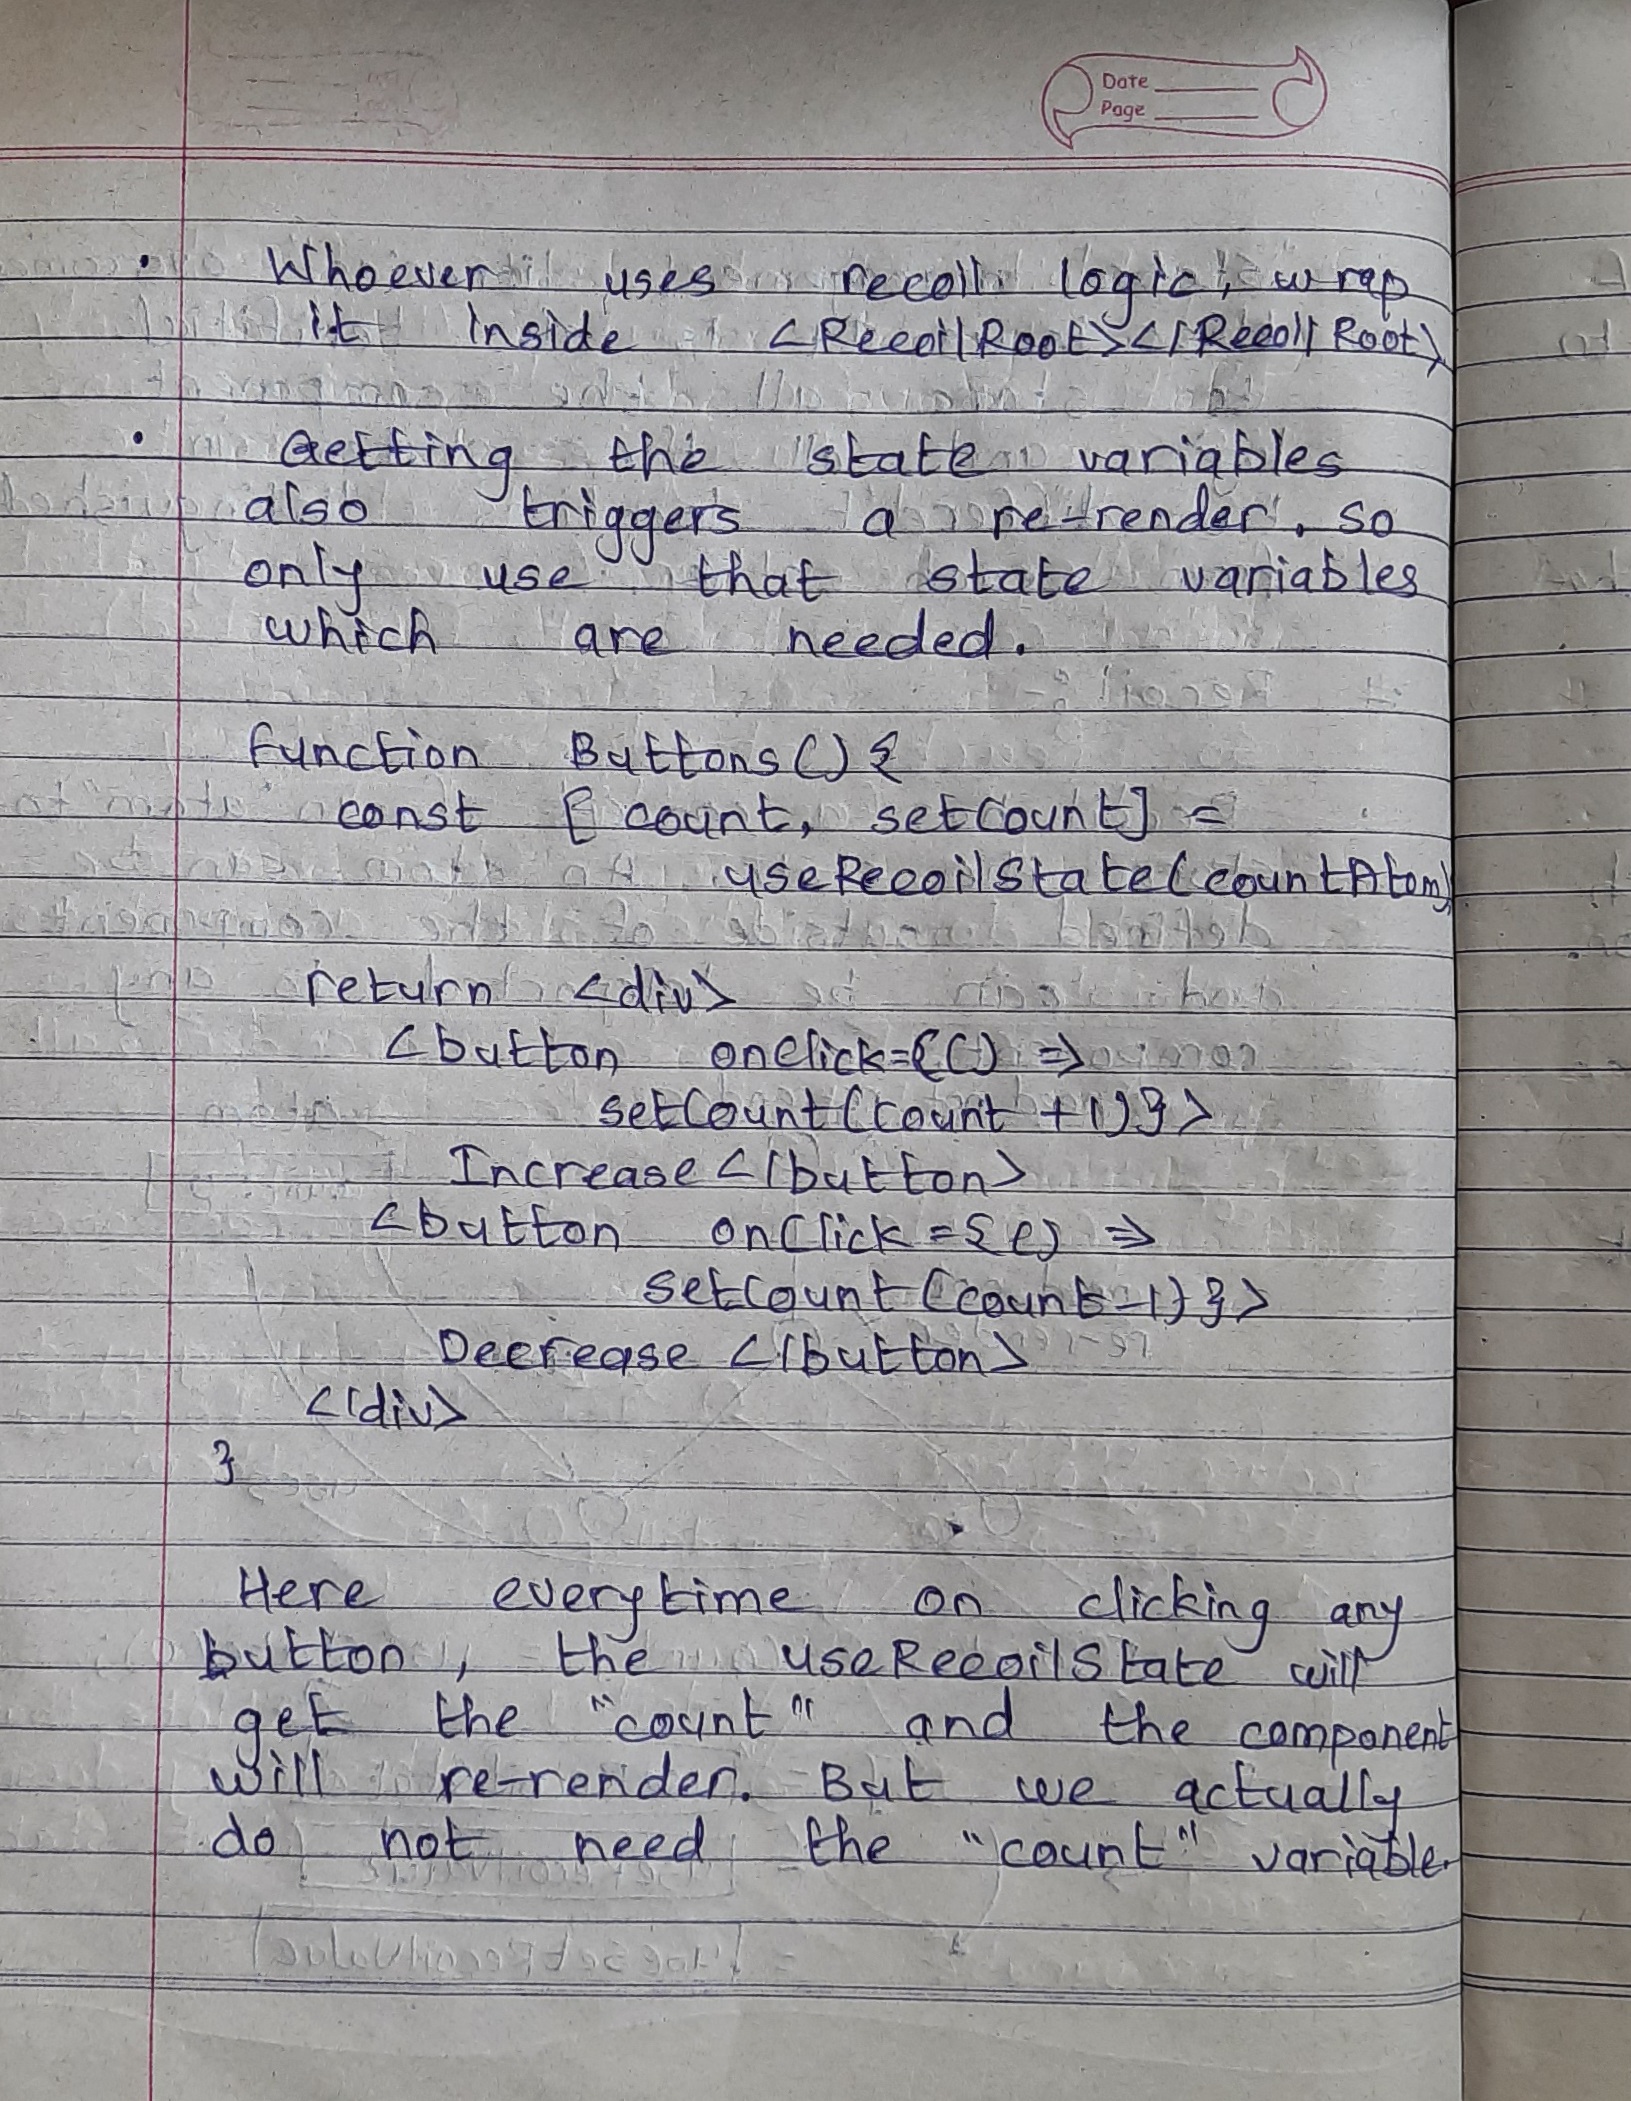 Date
Page
• Whoever uses recoil logic, wrap
it inside <RecoilRoot></RecoilRoot>
• Getting the state variables
also triggers a re-render, so
only use that state variables
which are needed.
function Buttons() {
const [count, setCount] =
useRecoilState(countAtom)
return <div>
<button onClick={() =>
setCount(count +1)}>
Increase</button>
<button onClick={() =>
setCount(count-1)}>
Decrease </button>
</div>
}
Here everytime on clicking any
button, the useRecoilState will
get the "count" and the component
will re-render. But we actually
do not need the "count" variable.